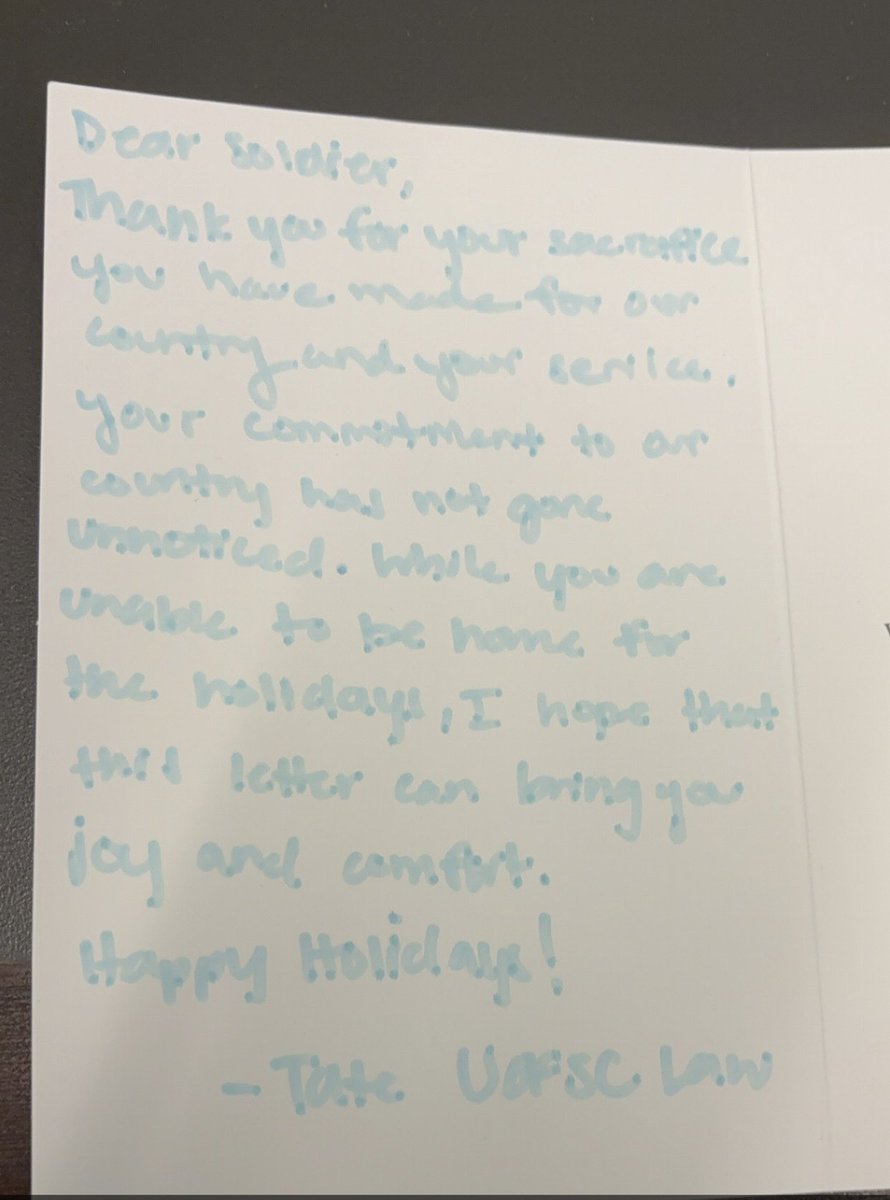 Dear Soldier,
Thank you for your sacrafice
you have made for our
country and your service.
your commitment to our
country has not gone
unnoticed. While you are
unable to be home for
the holidays, I hope that
this letter can bring you
joy and comfort.
Happy Holidays!
- Tate UofSC Law